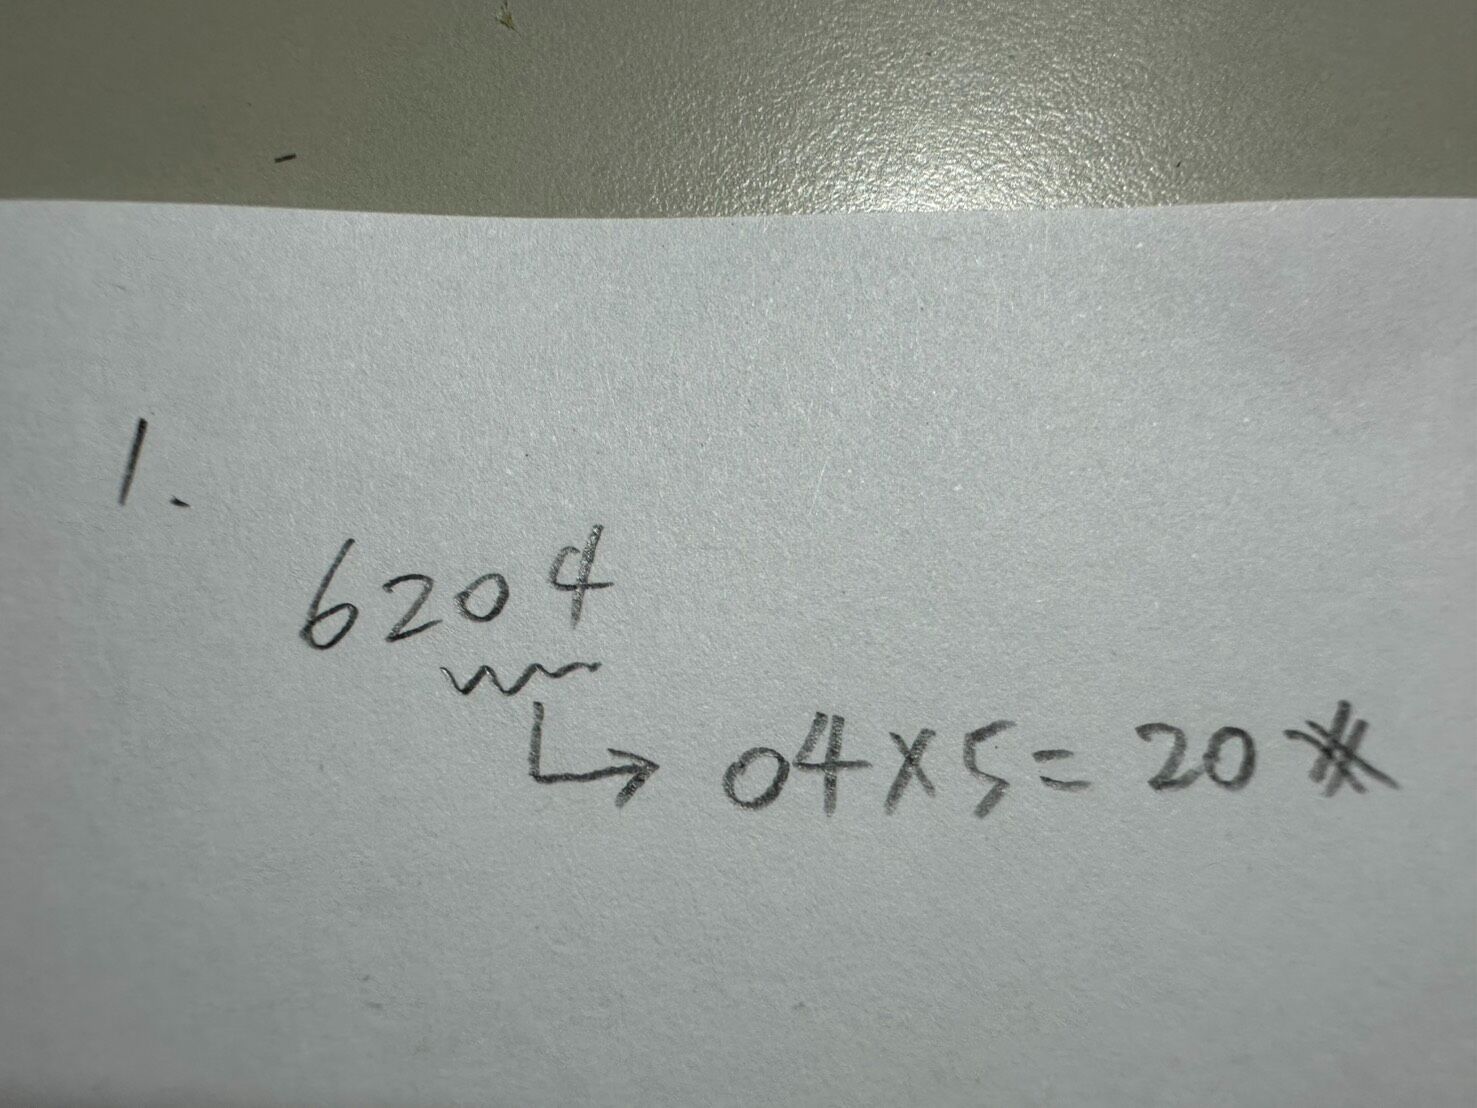 1.
6204
↳ 04×5=20 ※